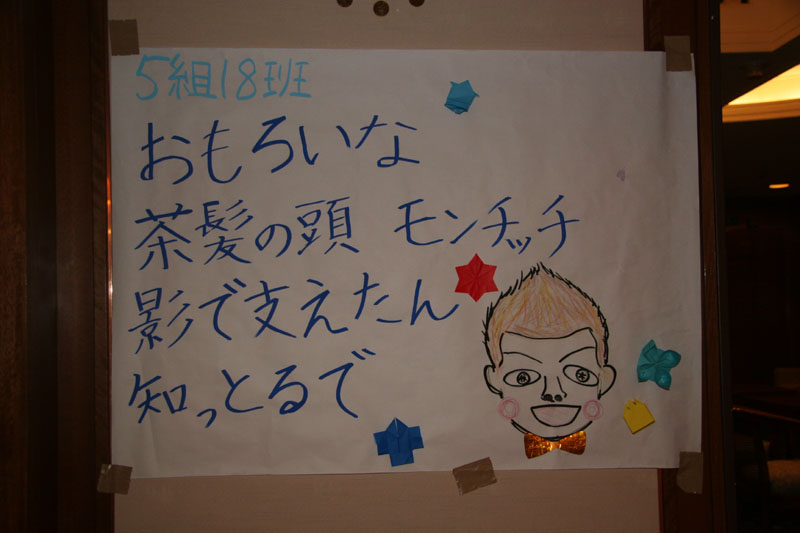 5組18班
おもろいな
茶髪の頭 モンチッチ
影で支えたん
知っとるで